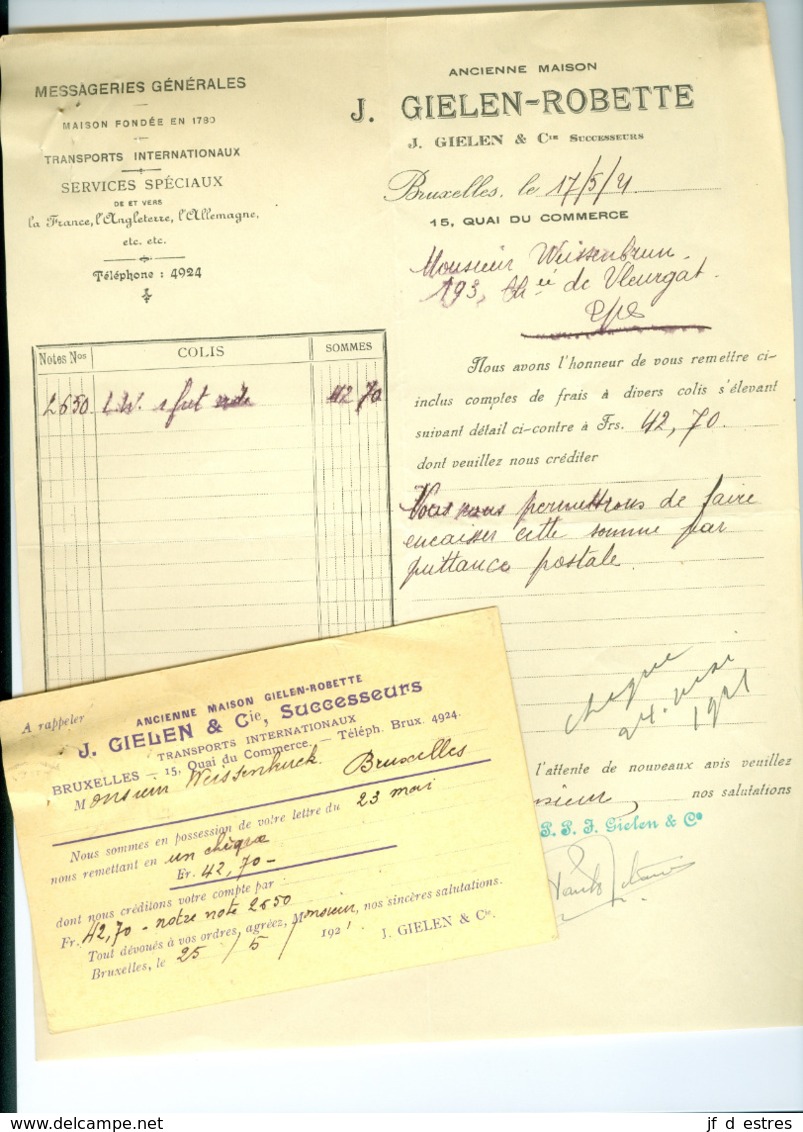 MESSAGERIES GÉNÉRALES
MAISON FONDÉE EN 1780
TRANSPORTS INTERNATIONAUX
SERVICES SPÉCIAUX
DE ET VERS
la France, l'Angleterre, l'Allemagne,
etc. etc.
Téléphone : 4924
ANCIENNE MAISON
J. GIELEN-ROBETTE
J. GIELEN & Cie SUCCESSEURS
Bruxelles, le 17/5/21
15, QUAI DU COMMERCE
Monsieur Weissenbrun
193, Chée de Vleurgat
Notes Nos COLIS SOMMES
2650 L.W. 1 fut vide 42 70
Nous avons l'honneur de vous remettre ci-
inclus comptes de frais à divers colis s'élevant
suivant détail ci-contre à Frs. 42,70.
dont veuillez nous créditer
Nous nous permettrons de faire
encaisser cette somme par
quittance postale.
chèque
24. mai
1921
l'attente de nouveaux avis veuillez
nsieur, nos salutations
P. P. J. Gielen & Co
A rappeler
ANCIENNE MAISON GIELEN-ROBETTE
J. GIELEN & Cie, Successeurs
TRANSPORTS INTERNATIONAUX
BRUXELLES — 15, Quai du Commerce. — Téléph. Brux. 4924.
Monsieur Weissenbruck Bruxelles
Nous sommes en possession de votre lettre du 23 mai
nous remettant en un chèque
Fr. 42,70 -
dont nous créditons votre compte par
Fr. 42,70 - notre note 2650
Tout dévoués à vos ordres, agréez, Monsieur, nos sincères salutations.
Bruxelles, le 25 / 5 / 1921 J. GIELEN & Cie.
jf d estres